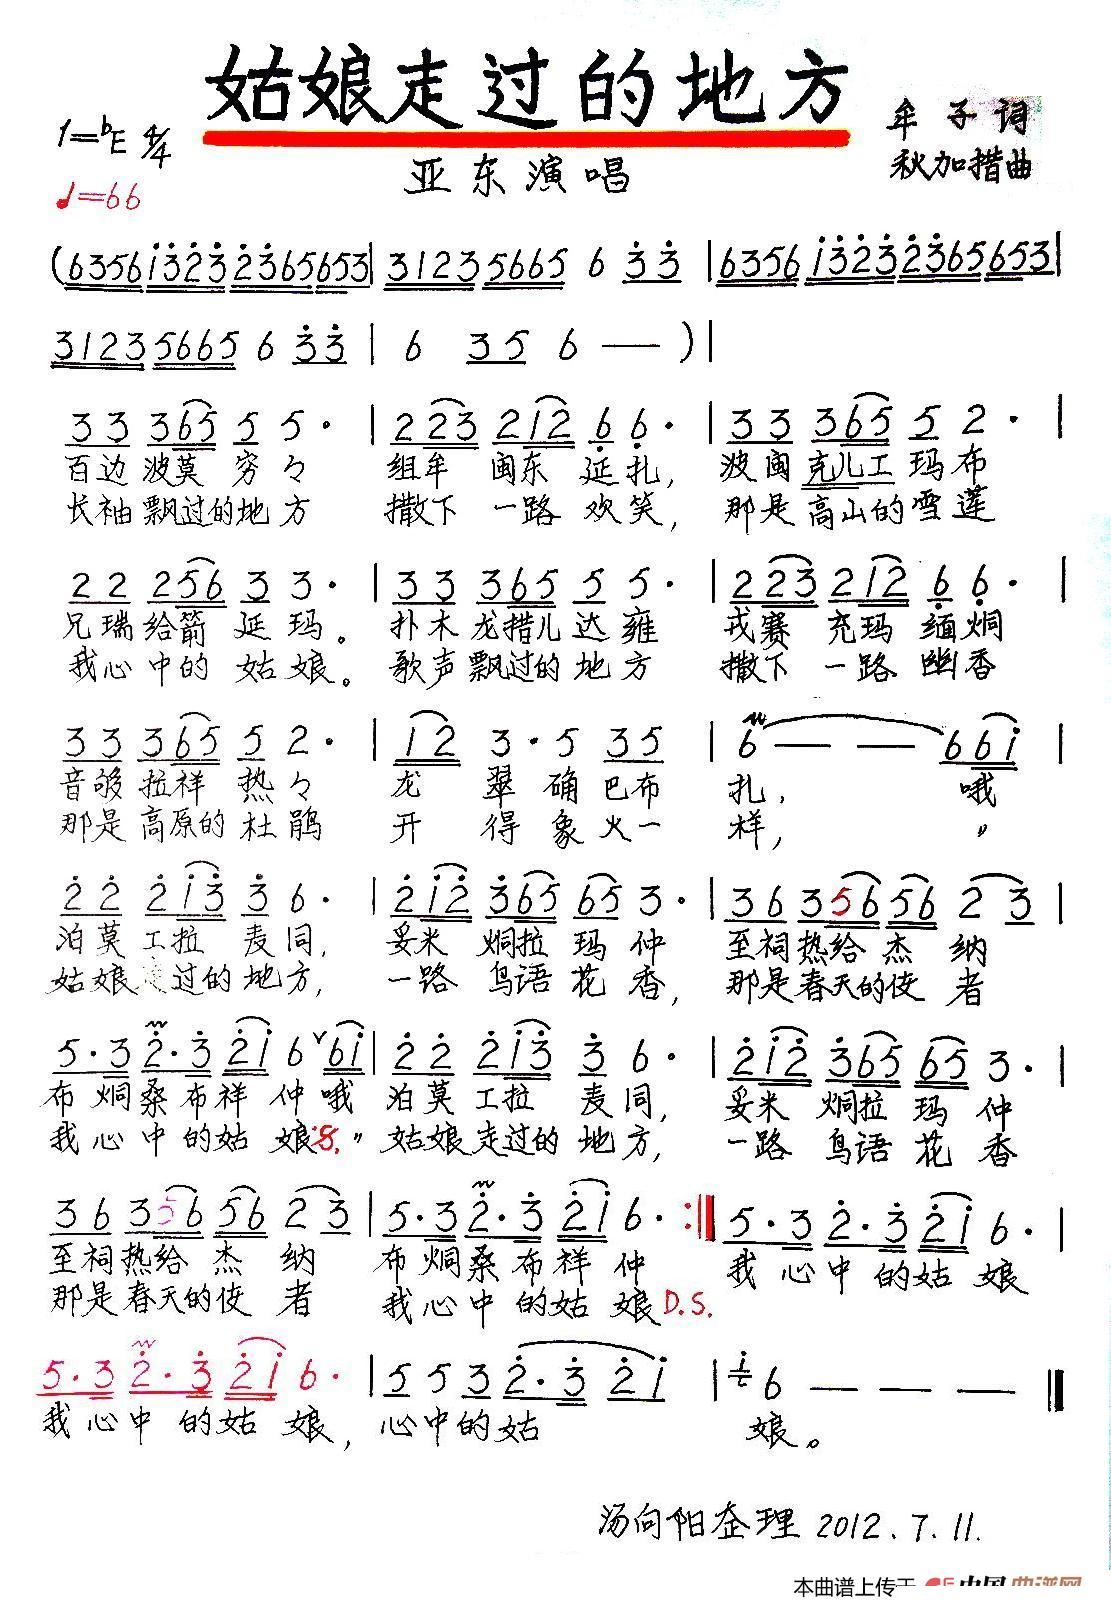 姑娘走过的地方
1=♭E 4/4
牟子词
♩=66
亚东演唱
秋加措曲
(6356i323 2365653| 31235665 6 33 |6356 i3232365653|
31235665 6 33 | 6 35 6 — )|
33 365 5 5· | 223 212 6 6· | 33 365 5 2· |
百边波莫 穷々 组牟 闽东 延扎, 波闽克儿工玛布
长袖飘过的地方 撒下 一路 欢笑, 那是高山的雪莲
22 256 3 3· | 33 365 5 5· | 223 212 6 6· |
兄瑞给箭 延玛。 扑木龙措儿达雍 戎赛 充玛 缅炯
我心中的 姑娘。 歌声飘过的地方 撒下 一路 幽香
33 365 5 2· | 12 3·5 35 | 6 — — 66i |
音够拉祥 热々 龙 翠确巴布 扎, 哦
那是高原的杜鹃 开 得象火一 样, 〃
22 2i3 3 6· | 2i2 365 65 3· | 36 356 56 2 3 |
泊莫工拉 麦同, 妥米 炯拉 玛 仲 至祠热给 杰 纳
姑娘走过的地方, 一路 鸟语 花 香, 那是春天的使 者
5·3 2·3 2i 6 ∨6i | 22 2i3 3 6· | 2i2 365 65 3· |
布炯桑布祥 仲哦 泊莫工拉 麦同, 妥米 炯拉 玛 仲
我心中的姑 娘 〃 姑娘走过的 地方, 一路 鸟语 花 香
36 356 56 2 3 | 5·3 2·3 2i 6· :‖ 5·3 2·3 2i 6· |
至祠热给 杰 纳 布炯桑布祥 仲 我心中的姑 娘
那是春天的使 者 我心中的姑 娘D.S.
5·3 2·3 2i 6· | 5 5 3 2·3 2i | i6 — — — ‖
我心中的姑 娘, 心中的姑 娘。
汤向阳整理 2012.7.11.
本曲谱上传于 中国曲谱网